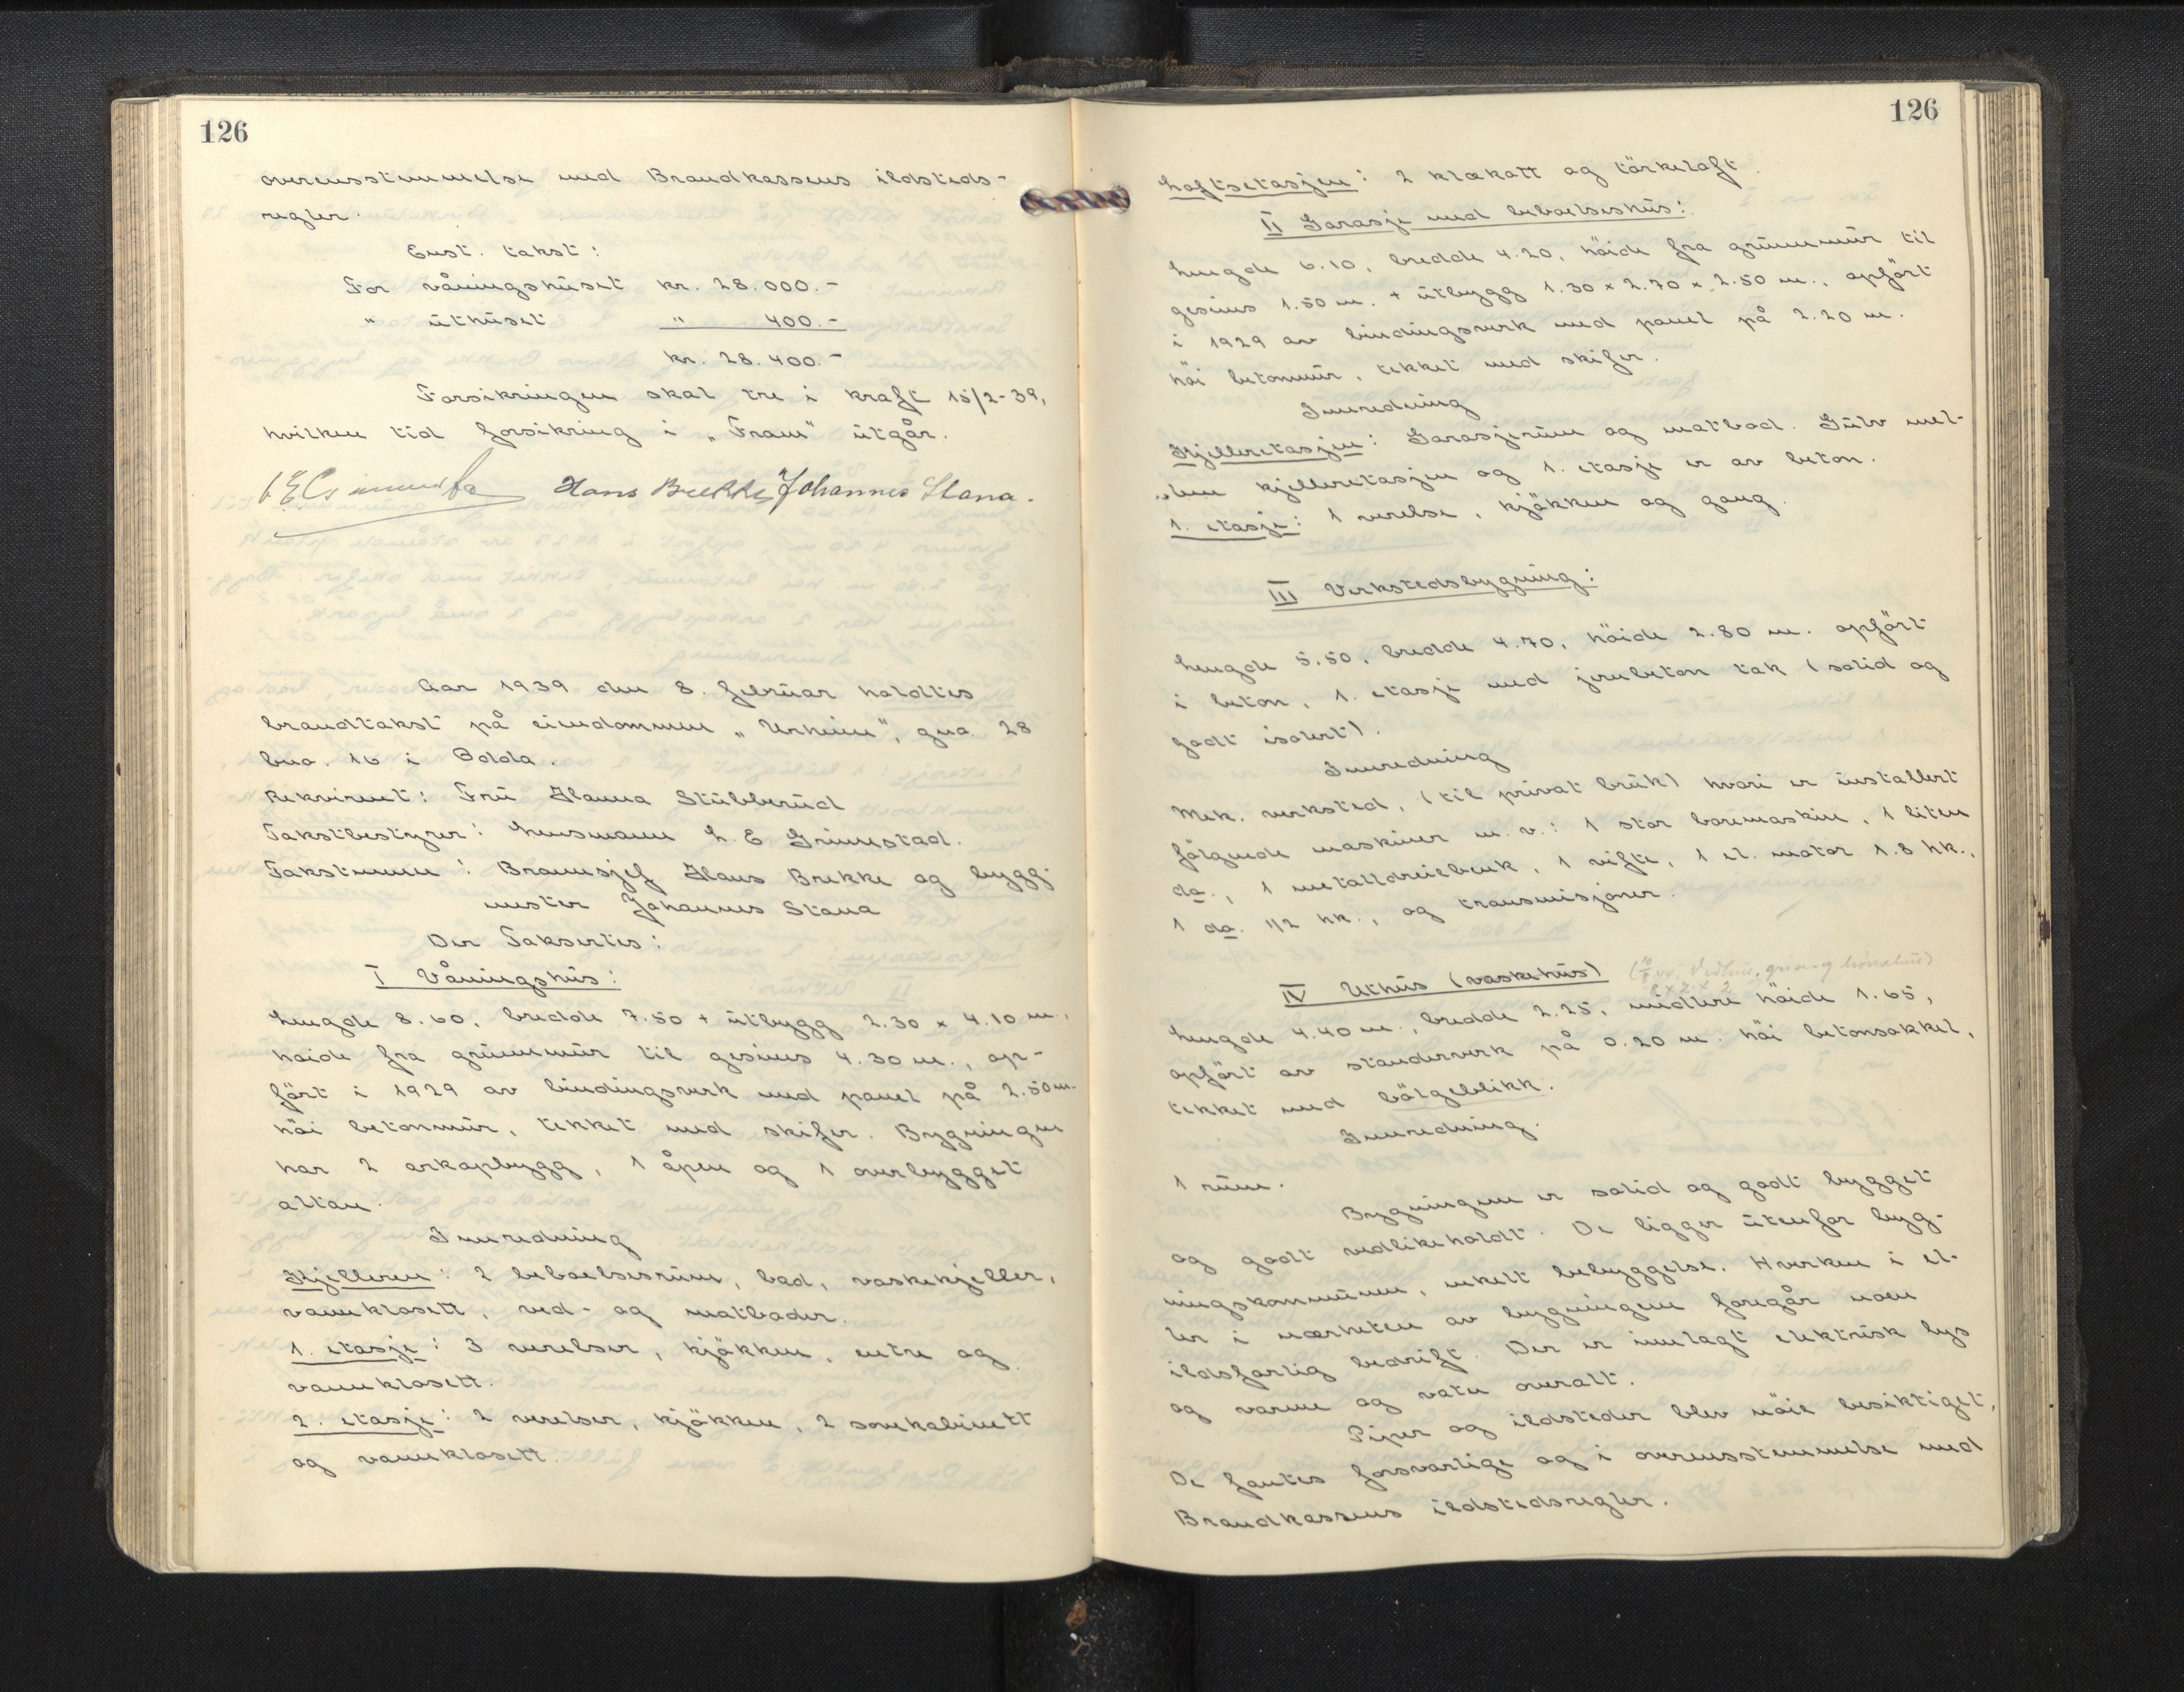 126
overensstemmelse med Brandkassens ildsteds-
regler.
Enst. takst:
For våningshuset kr. 28.000.-
" uthuset " 400.-
kr. 28.400.-
Forsikringen skal tre i kraft 15/2-39,
hvilken tid forsikring i „Fram" utgår.
Hans Brekke Johannes Stana.
Aar 1939 den 8. februar holdtes
brandtakst på eiendommen „Urheim", gno. 28
bno. 16 i Odda.
Rekvirent: Fru Hanna Stubberud
Takstbestyrer: Lensmann L. E. Grimestad.
Takstmenn: Brannsjef Hans Brekke og bygg-
mester Johannes Stana
Der Taksertes:
I Våningshus:
Lengde 8.60, bredde 7.50 + utbygg 2.30 x 4.10 m.,
høide fra grunnmur til gesims 4.30 m., op-
ført i 1929 av bindingsverk med panel på 2.50 m.
höi betonmur, tekket med skifer. Bygningen
har 2 arkopbygg, 1 åpen og 1 overbygget
altan.
Innredning
Kjelleren: 2 beboelsesrum, bad, vaskekjeller,
vannklosett, ved- og matboder.
1. etasje: 3 verelser, kjökken, entre og
vannklosett.
2. etasje: 2 verelser, kjökken, 2 sovekabinett
og vannklosett.
126
Loftsetasjen: 2 klækott og törkeloft.
II Garasje med beboelseshus:
Lengde 6.10, bredde 4.20, höide fra grunnmur til
gesims 1.50 m. + utbygg 1.30 x 2.70 x 2.50 m., opfört
i 1929 av bindingsverk med panel på 2.20 m.
höi betonmur, tekket med skifer.
Innredning
Kjelleretasjen: Garasjerum og matbod. Gulv mel-
lem kjelleretasjen og 1. etasje er av beton.
1. etasje: 1 verelse, kjökken og gang.
III Verkstedsbygning:
Lengde 5.50, bredde 4.70, höide 2.80 m. opfört
i beton, 1. etasje med jernbeton tak (solid og
godt isolert).
Innredning
Mek. verksted, (til privat bruk) hvori er installert
fölgende maskiner m. v.: 1 stor boremaskin, 1 liten
do., 1 metalldreiebenk, 1 vifte, 1 el. motor 1.8 hk.,
1 do. 1/2 hk., og transmisjoner.
IV Uthus (vaskehus)
8 x 2 x 2
Lengde 4.40 m., bredde 2.25, midlere höide 1.65,
opfört av stenderverk på 0.20 m. höi betonsokkel,
tekket med bölgeblikk.
Innredning.
1 rum.
Bygningene er solid og godt bygget
og godt vedlikeholdt. De ligger utenfor byg-
ningskommunen, enkelt bebyggelse. Hverken i el-
ler i nærheten av bygningene foregår noen
ildsfarlig bedrift. Der er innlagt elektrisk lys
og varme og vatn overalt.
Piper og ildsteder blev nöie besiktiget,
De fantes forsvarlige og i overensstemmelse med
Brandkassens ildstedsregler.